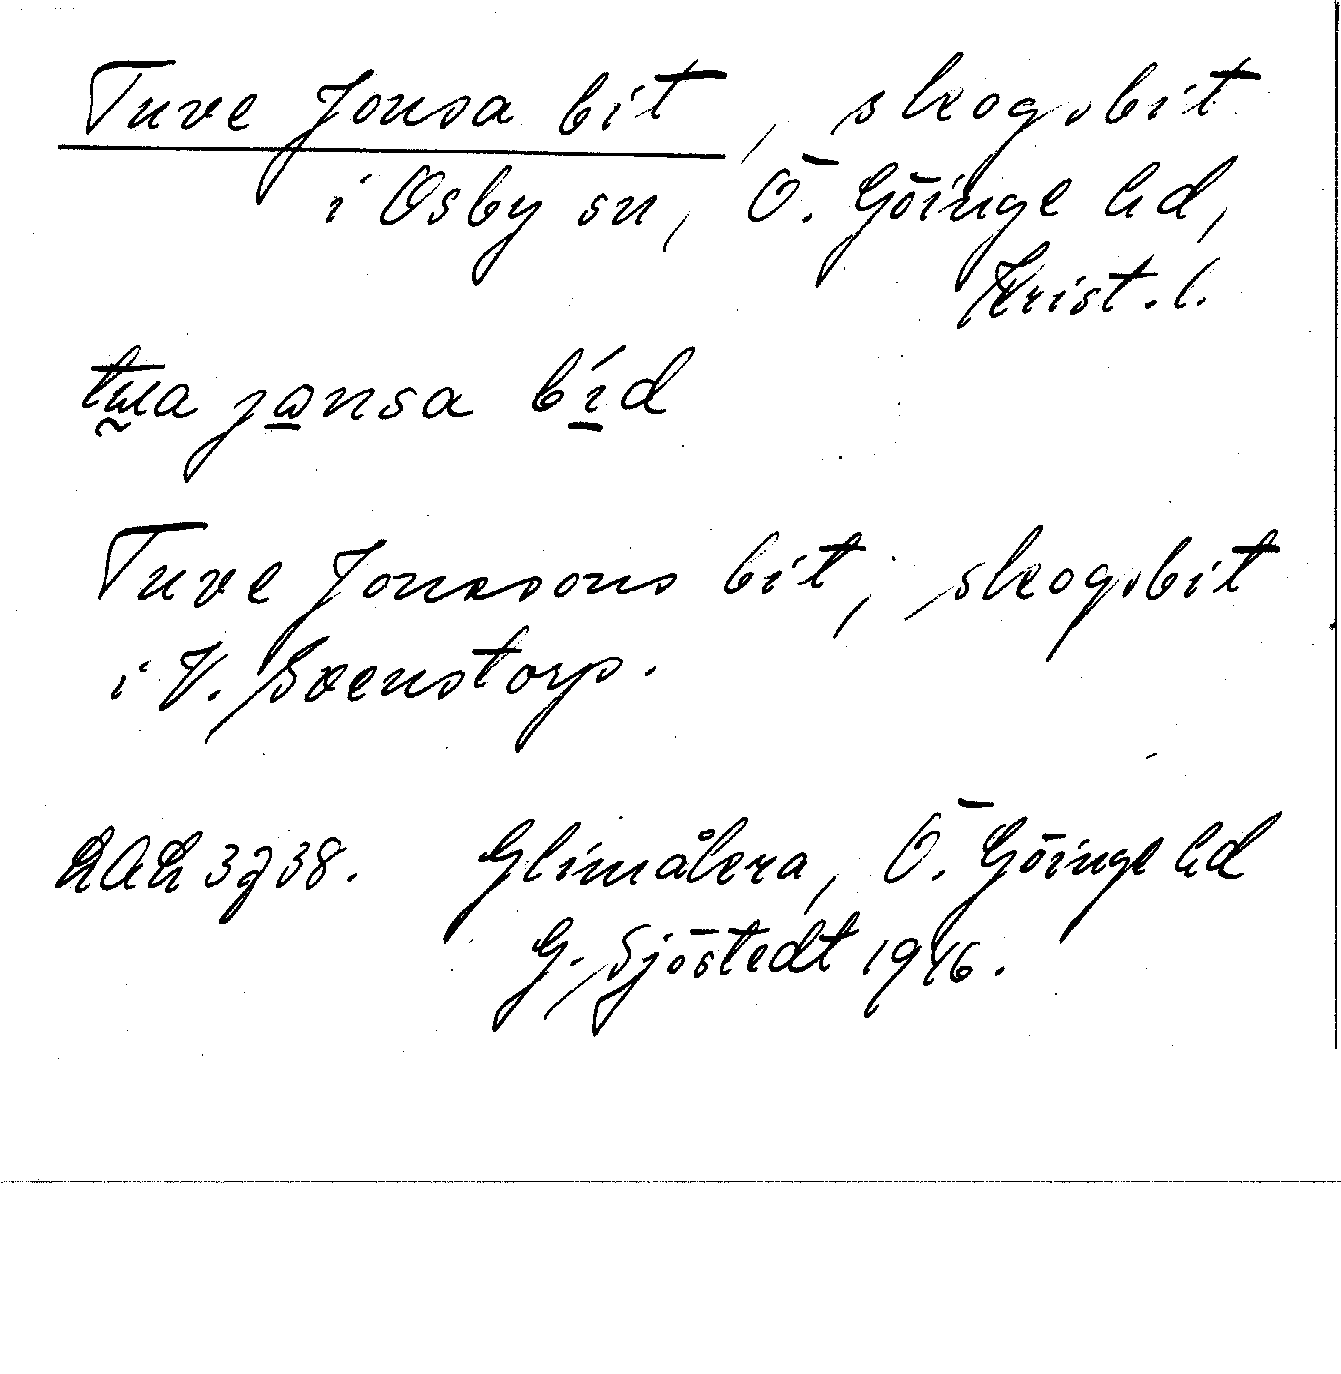 Tuve Jonsa bit, skogsbit
i Osby sn, Ö. Göinge hd,
Krist. l.
jansa bíd
Tuve Jonssons bit, skogsbit
i V. Svenstorp.
LAL 3738. Glimåkra, Ö. Göinge hd
G. Sjöstedt 1946.